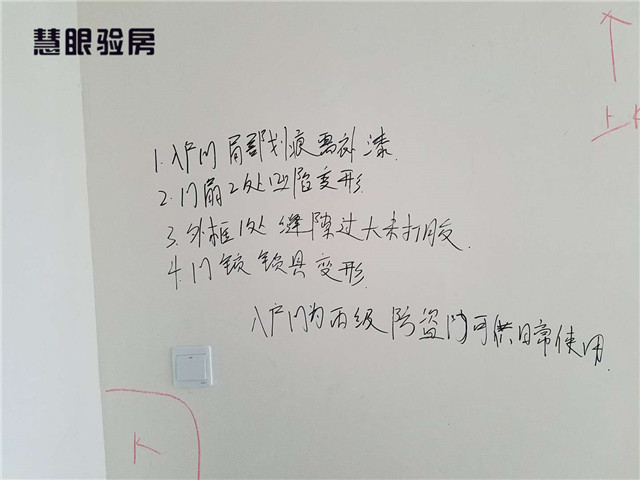 慧眼验房
1.入户门局部划痕需补漆.
2.门扇2处凹陷变形
3.外框1处缝隙过大未打胶.
4.门锁锁具变形.
入户门为丙级防盗门可供日常使用.
K